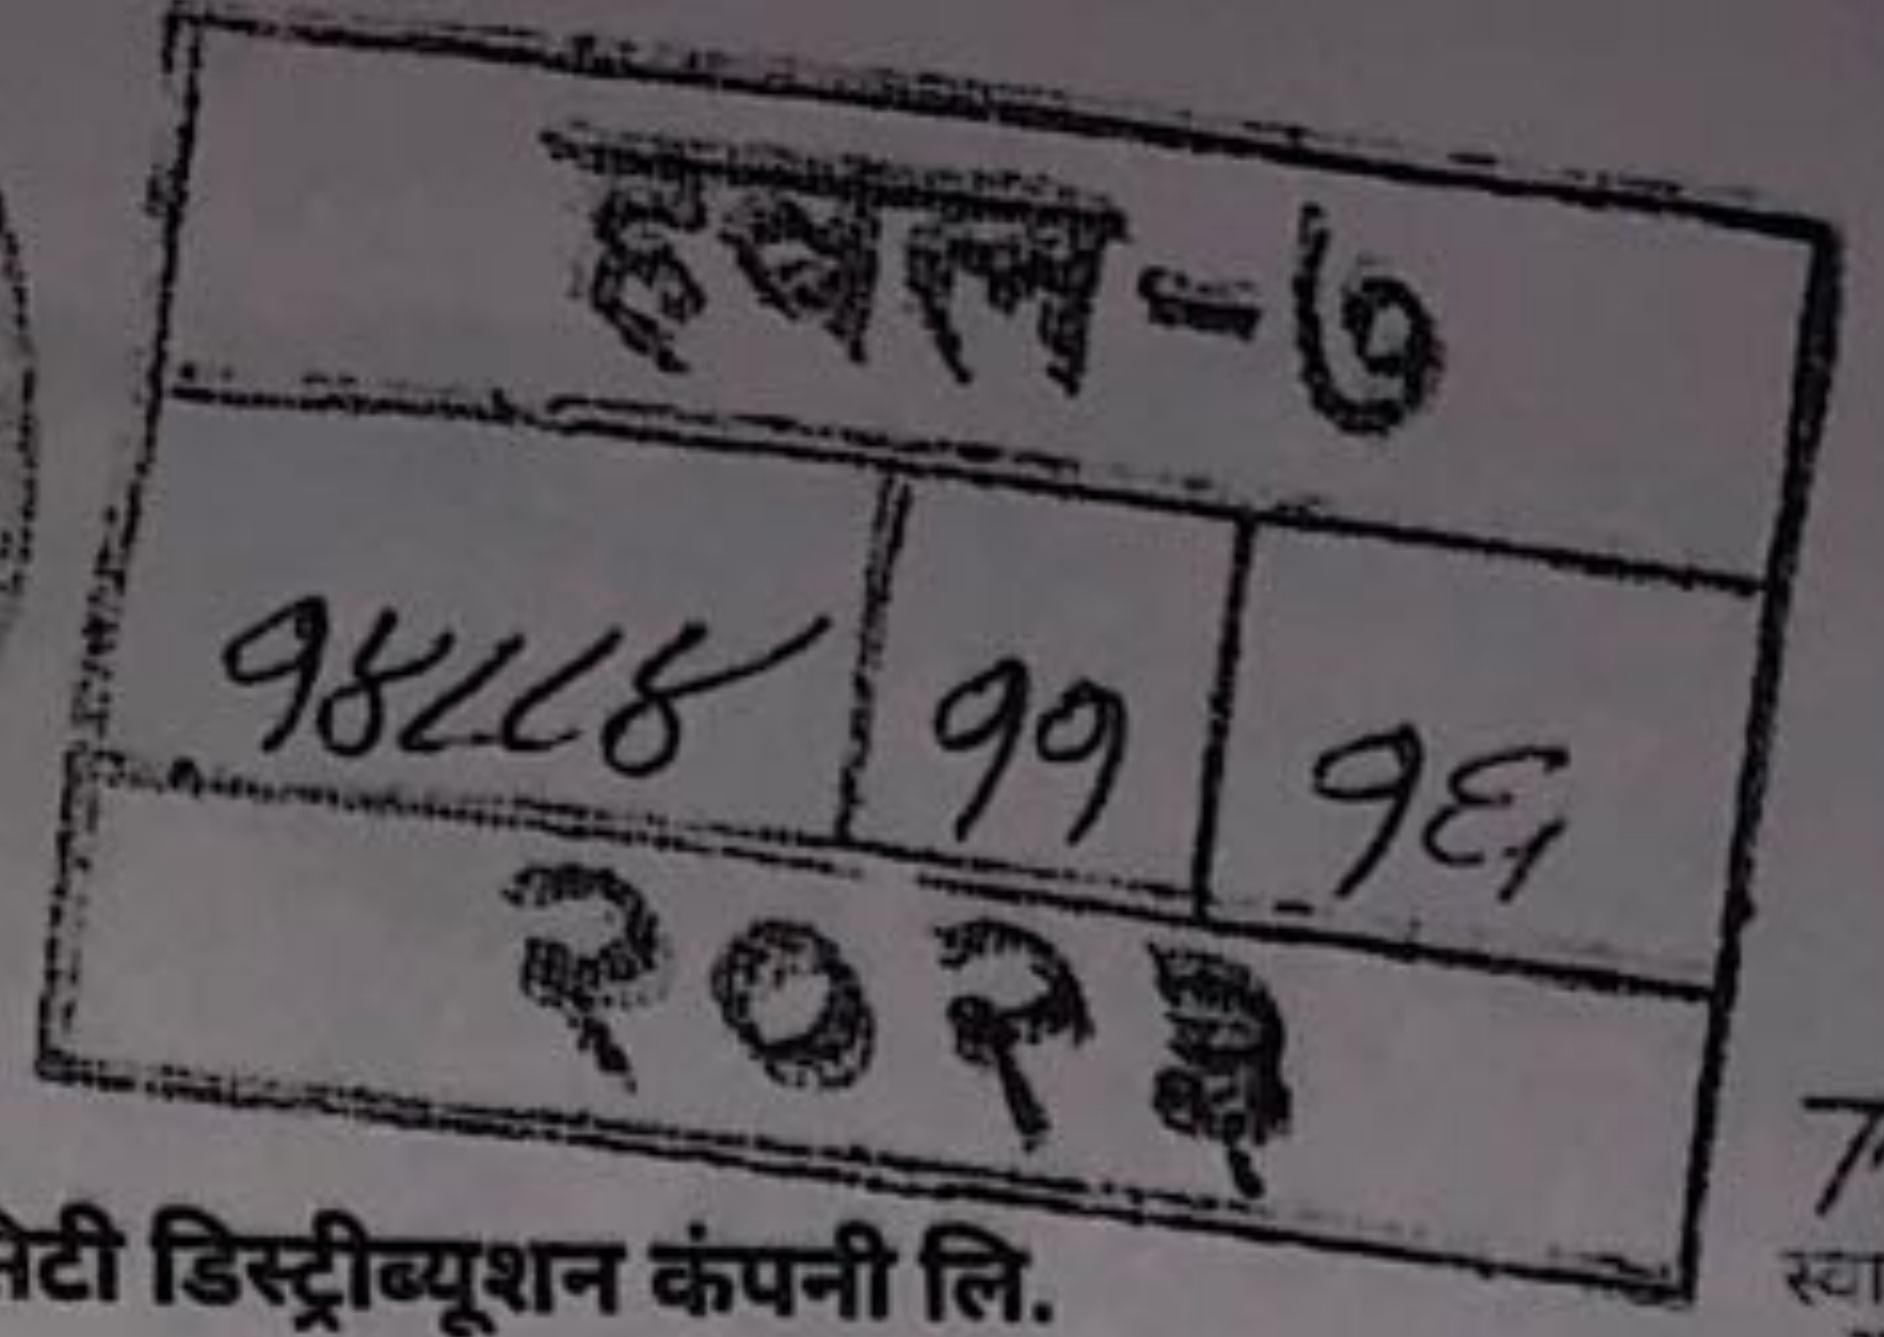 हवल-७
१४८८४ ११ १६
२०२३
डिस्ट्रीब्यूशन कंपनी लि.